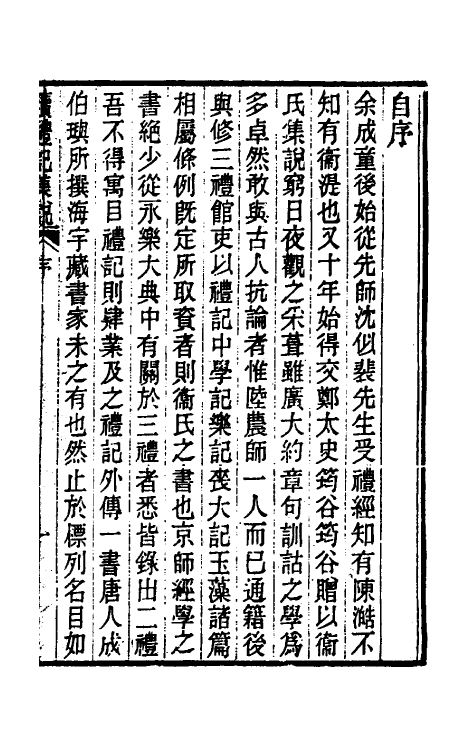 自序
余成童後始從先師沈似裴先生受禮經知有陳澔不
知有衞湜也又十年始得交鄭太史筠谷筠谷贈以衞
氏集說窮日夜觀之采葺雖廣大約章句訓詁之學爲
多卓然敢與古人抗論者惟陸農師一人而已通籍後
與修三禮館吏以禮記中學記樂記喪大記玉藻諸篇
相屬條例既定所取資者則衞氏之書也京師經學之
書絕少從永樂大典中有關於三禮者悉皆錄出二禮
吾不得寓目禮記則肄業及之禮記外傳一書唐人成
伯璵所撰海宇藏書家未之有也然止於標列名目如
續禮記集說 序 一